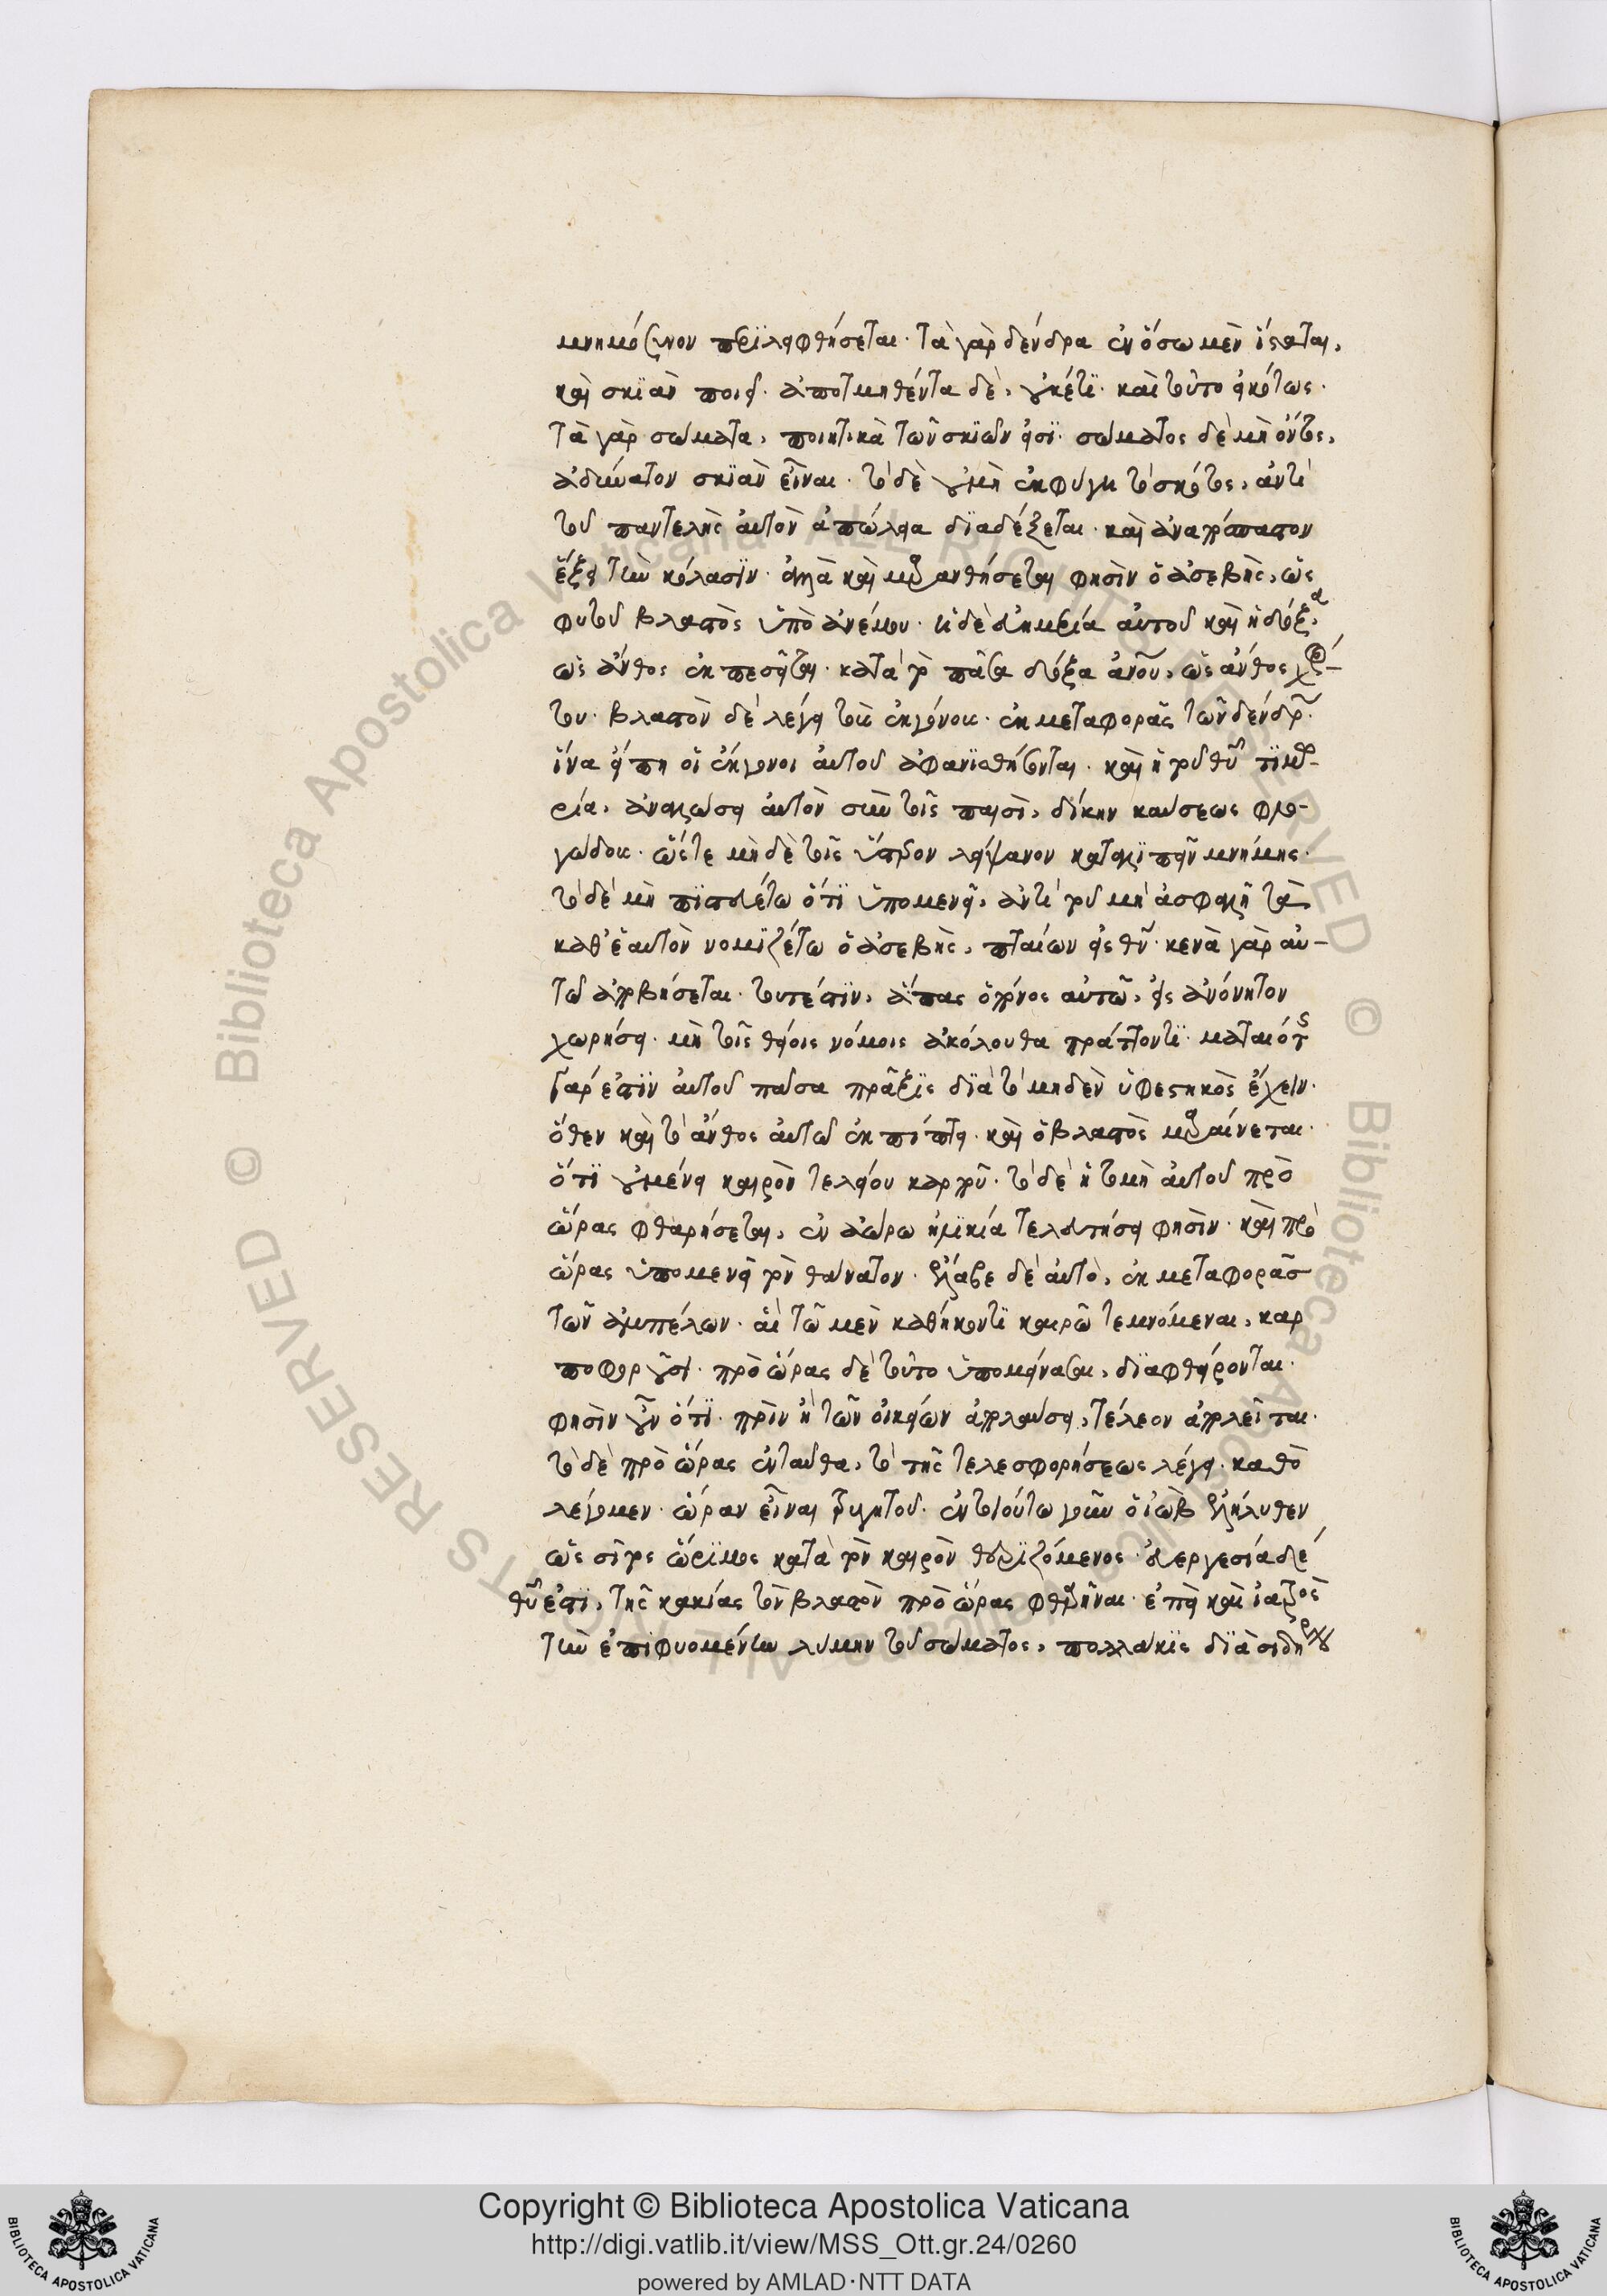 μνημόσυνον περιλειφθήσεται· τὰ γὰρ δένδρα ἐν ὅσω μὲν ἵσταται,
καὶ σκιὰν ποιεῖ· ἀποτμηθέντα δὲ, οὐκέτι· καὶ τοῦτο εἰκότως·
τὰ γὰρ σώματα, ποιητικὰ τῶν σκιῶν εἰσί· σώματος δὲ μὴ ὄντος,
ἀδύνατον σκιὰν εἶναι· τὸ δὲ οὐ μὴ ἐκφύγη τὸ σκότος, ἀντὶ
τοῦ παντελὴς αὐτὸν ἀπώλεια διαδέξεται· καὶ ἀνατρόπαστον
ἕξει τὴν κόλασιν· ἀλλὰ καὶ μαρανθήσεται φησὶν ὁ ἀσεβὴς, ὡς
φυτοῦ βλαστὸς ὑπὸ ἀνέμου· ἡ δὲ εὐημερία αὐτοῦ καὶ ἡ δόξα,
ὡς ἄνθος ἐκπεσεῖται· κατὰ τὸ πᾶσα δόξα ἀνου, ὡς ἄνθος χόρ-
του· βλαστὸν δὲ λέγει τοὺς ἐκγόνους· ἐκ μεταφορᾶς τῶν δένδρων·
ἵνα εἴπη οἱ ἔκγονοι αὐτοῦ ἀφανισθήσονται· καὶ ἡ τοῦ θυ τιμω-
ρία, ἀναλώσει αὐτὸν σὺν τοῖς παισὶ, δίκην καύσεως φλο-
γώδους· ὥστε μὴ δὲ τοῖς ὕστερον λείψανον καταλιπεῖν μνήμης·
τὸ δὲ μὴ πιστευέτω ὅτι ὑπομενεῖ, ἀντὶ τοῦ μὴ ἀσφαλῆ τὰ
καθ' ἑαυτὸν νομιζέτω ὁ ἀσεβὴς, πταίων εἰς θν· κενὰ γὰρ αὐ-
τῶ ἀποβήσεται· τουτέστιν, ἅπας ὁ πόνος αὐτῶ, εἰς ἀνόνητον
χωρήσει· μὴ τοῖς θείοις νόμοις ἀκόλουθα πράττοντι· ματαιότης
γάρ ἐστιν αὐτοῦ πᾶσα πρᾶξις διὰ τὸ μηδὲν ὑφεστηκὸς ἔχειν·
ὅθεν καὶ τὸ ἄνθος αὐτοῦ ἐκπίπτει· καὶ ὁ βλαστὸς μαραίνεται·
ὅτι οὐ μένει καιρὸν τελείου καρποῦ· τὸ δὲ ἡ τομὴ αὐτοῦ πρὸ
ὥρας φθαρήσεται, ἐν ἀώρω ἡλικία τελευτήσει φησὶν· καὶ πρὸ
ὥρας ὑπομενεῖ τὸν θάνατον· ἔλαβε δὲ αὐτὸ, ἐκ μεταφορᾶς
τῶν ἀμπέλων· αἳ τῶ μὲν καθήκοντι καιρῶ τεμνόμεναι, καρ
ποφοροῦσι· πρὸ ὥρας δὲ τοῦτο ὑπομείνασαι, διαφθείρονται·
φησὶν οὖν ὅτι· πρὶν ἢ τῶν οἰκείων ἀπολαύσει, τέλεον ἀπολεῖται·
τὸ δὲ πρὸ ὥρας ἐνταῦθα, τὸ τῆς τελεσφορήσεως λέγει· καθὸ
λέγομεν· ὥραν εἶναι τρυγητοῦ· ἐν τοιούτω γοῦν ὁ ἰὼβ ἐξελήλυθεν
ὡς σῖτος ὥριμος κατὰ τὸν καιρὸν θεριζόμενος· εὐεργεσία δέ
θυ ἐστι, τῆς κακίας τὸν βλαστὸν πρὸ ὥρας φθαρῆναι· ἐπεὶ καὶ ἰατρὸς
τὴν ἐπιφυομένην λύμην τοῦ σώματος, πολλάκις διὰ σιδήρου